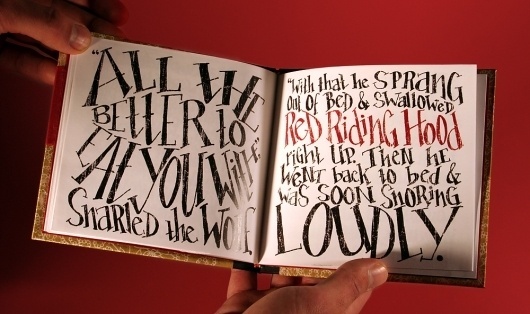 "ALL THE
BETTER to
EAT YOU With,"
Snarled the Wolf.
"With that he SPRANG
out of BED & SWALLOWED
ReD RiDiNG HooD
right UP. Then he
WENT back to bed &
was SOON SNORING
LOUDLY.